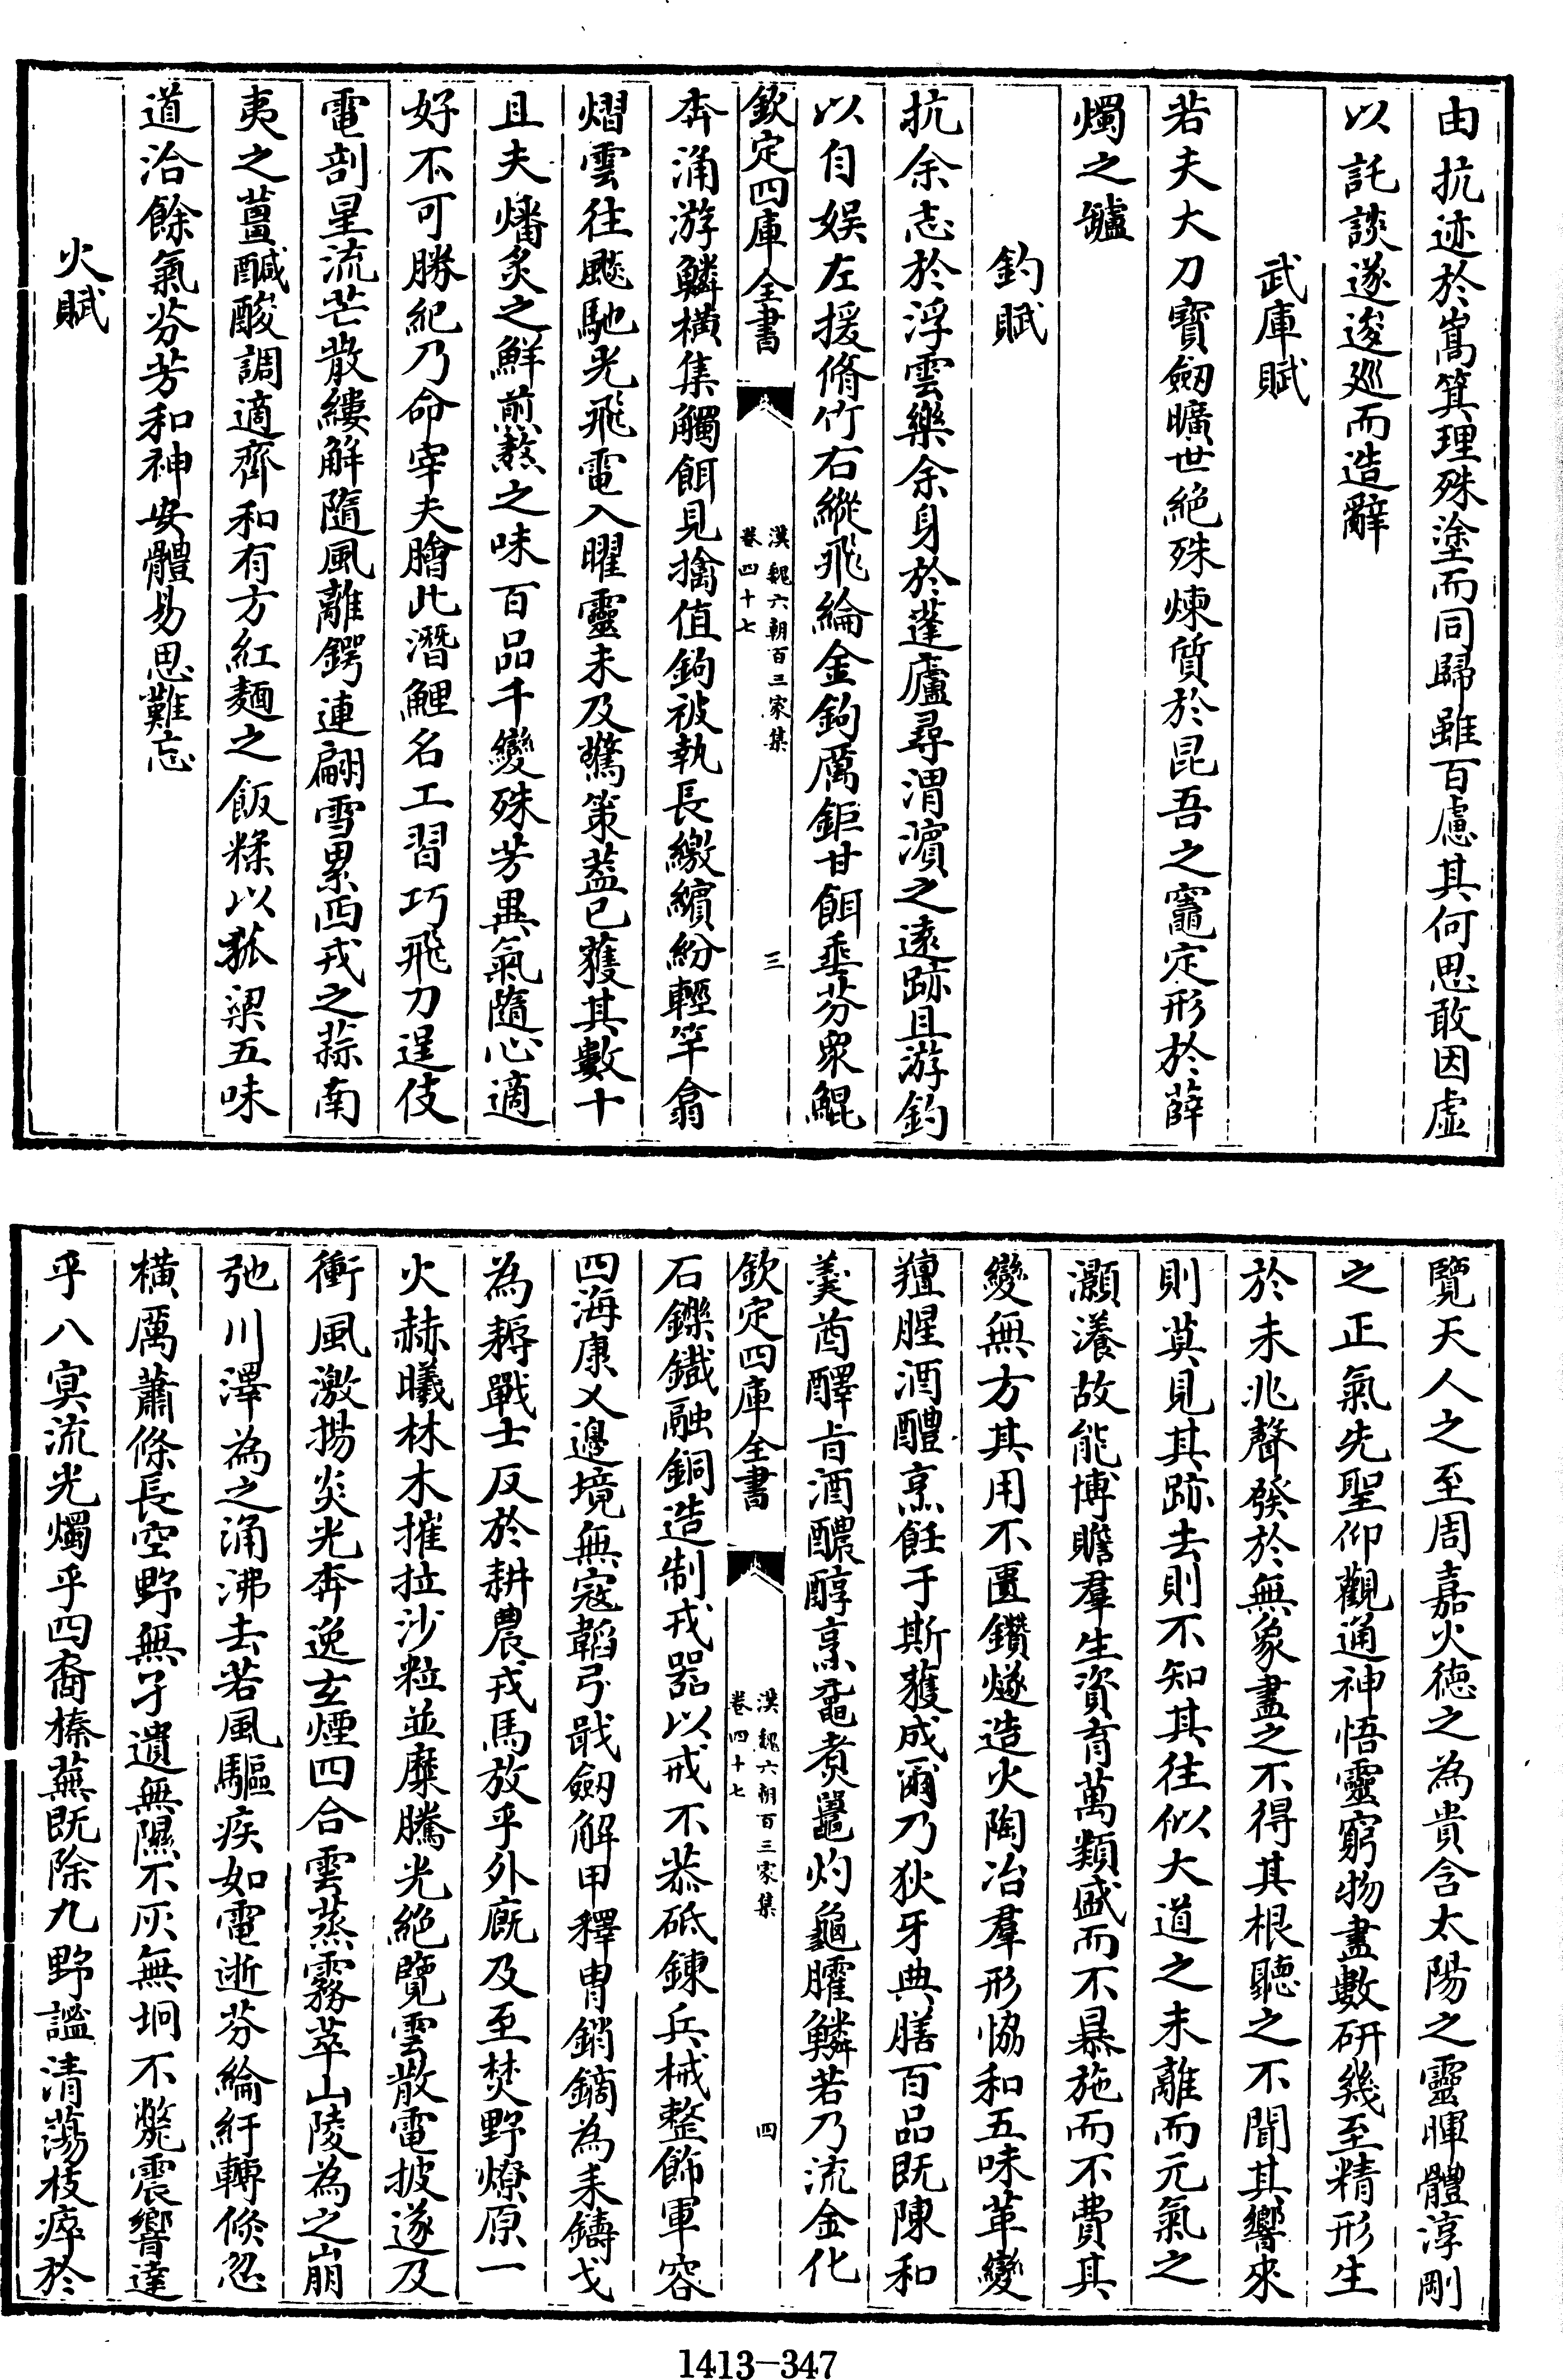 由抗迹於嵩箕理殊塗而同歸雖百慮其何思敢因虛
以託談遂逡巡而造辭
武庫賦
若夫大刀寶劒曠世絕殊煉質於昆吾之竈定形於薛
燭之鑪
釣賦
抗余志於浮雲樂余身於蓬廬尋渭濱之遠跡且游釣
以自娱左援脩竹右縱飛綸金鉤厲鉅甘餌垂芬衆鯤
欽定四庫全書
漢魏六朝百三家集
卷四十七
三
奔涌游鱗橫集觸餌見擒值鉤被執長繳繽紛輕竿翕
熠雲往飈馳光飛電入曜靈未及驚策葢已獲其數十
且夫燔炙之鮮煎熬之味百品千變殊芳異氣隨心適
好不可勝紀乃命宰夫膾此潛鯉名工習巧飛刀逞伎
電剖星流芒散縷解隨風離鍔連翩雪累西戎之蒜南
夷之薑鹹酸調適齊和有方紅麵之飯糅以菰粱五味
道洽餘氣芬芳和神安體易思難忘
火賦
覽天人之至周嘉火德之為貴含太陽之靈暉體淳剛
之正氣先聖仰觀通神悟靈窮物盡數研幾至精形生
於未兆聲發於無象盡之不得其根聽之不聞其響來
則莫見其跡去則不知其往似大道之未離而元氣之
灝瀁故能博贍羣生資育萬類盛而不暴施而不費其
變無方其用不匱鑽燧造火陶冶羣形協和五味革變
羶腥酒醴烹飪于斯獲成爾乃狄牙典膳百品既陳和
羹酋醳旨酒醲醇烹黿煮鼉灼龜臛鱗若乃流金化
欽定四庫全書
漢魏六朝百三家集
卷四十七
四
石鑠鐵融銅造制戎器以戒不恭砥鍊兵械整飾軍容
四海康乂邊境無寇韜弓戢劒解甲釋胄銷鏑為耒鑄戈
為耨戰士反於耕農戎馬放乎外廐及至焚野燎原一
火赫曦林木摧拉沙粒並糜騰光絕覽雲散電披遂及
衝風激揚炎光奔逸玄煙四合雲蒸霧萃山陵為之崩
弛川澤為之涌沸去若風驅疾如電逝芬綸紆轉倏忽
橫厲蕭條長空野無孑遺無隰不灰無坰不斃震響達
乎八㝠流光燭乎四裔榛蕪既除九野謐清蕩枝瘁於
1413—347